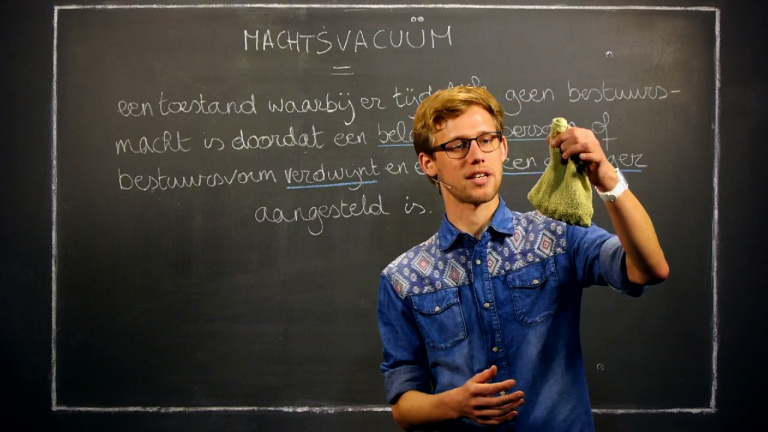 MACHTSVACUÜM
=
een toestand waarbij er tijdelijk geen bestuurs-
macht is doordat een of
bestuursvorm verdwijnt en
aangesteld is.